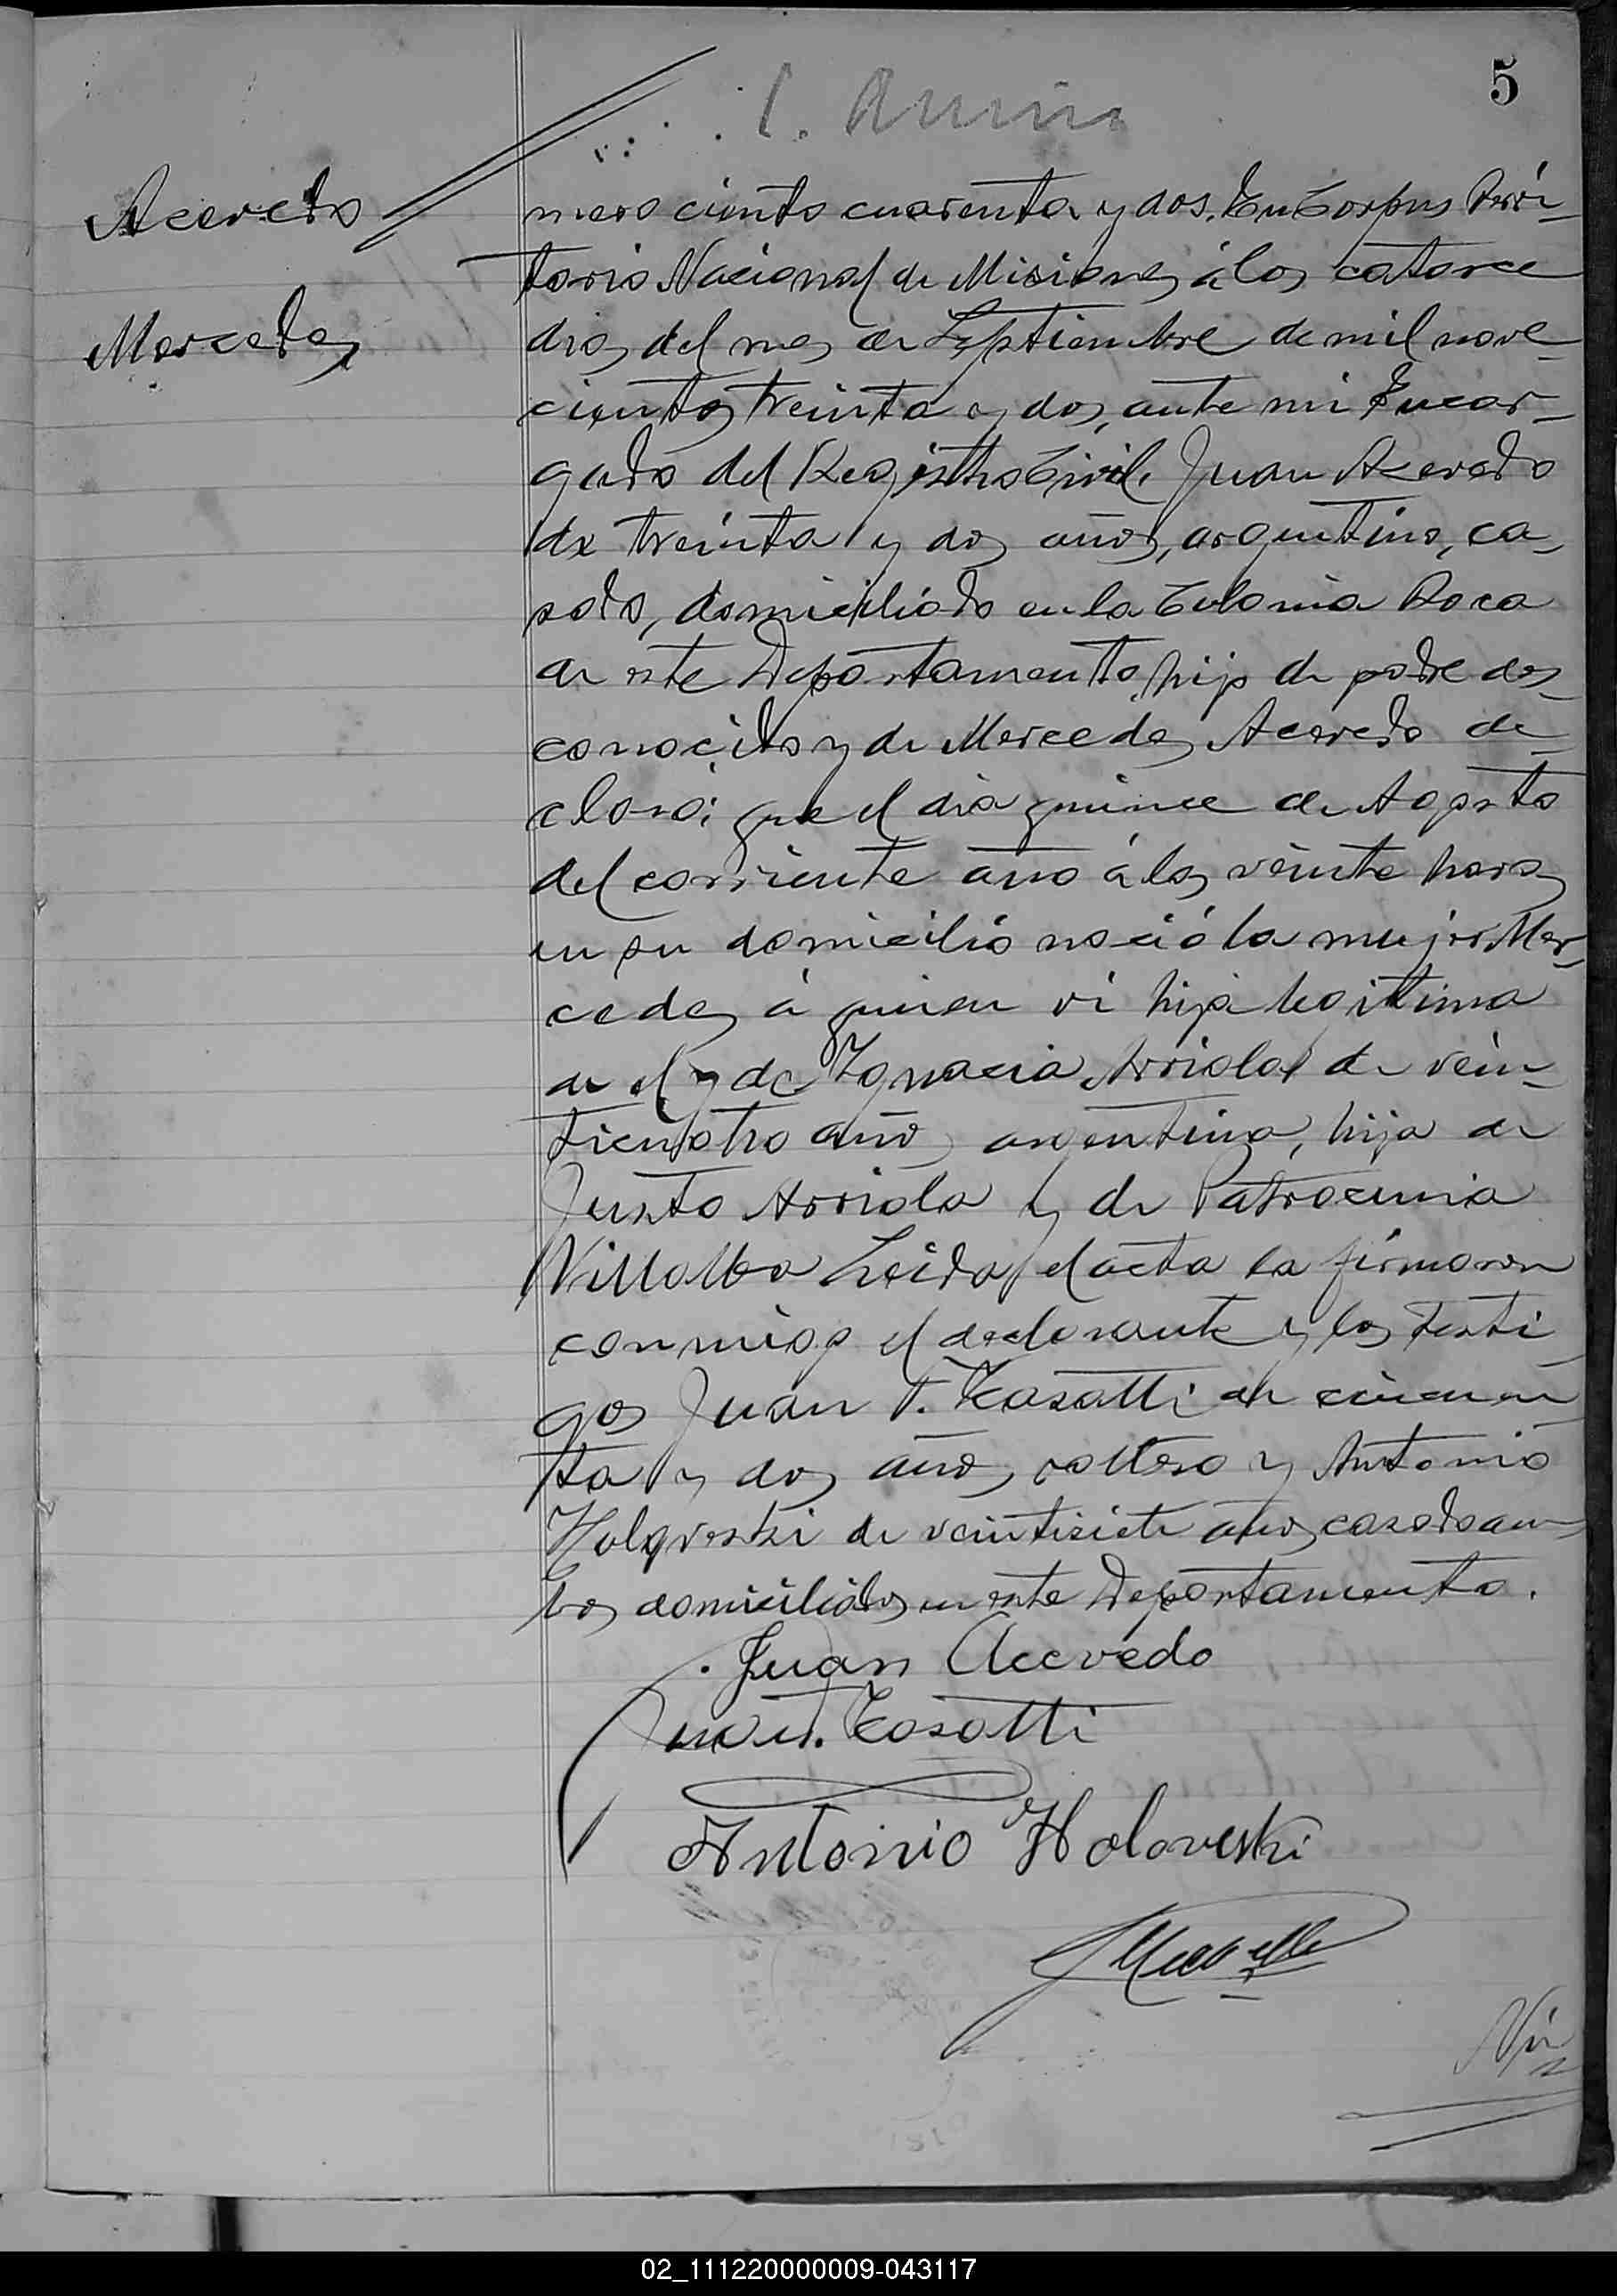 5
Acevedo
Mercedes
mero ciento cuarenta y dos. En Corpus Terri-
torio Nacional de Misiones á los catorce
dias del mes de Septiembre de mil nove-
cientos treinta y dos, ante mi Encar-
gado del Registro Civil, Juan Acevedo
de treinta y dos años, argentino, ca-
sado, domiciliado en la Colonia Roca
de este Departamento, hijo de padre des-
conocido y de Mercedes Acevedo de-
claró: que el dia quince de Agosto
del corriente año á las veinte horas
en su domicilio nació la mujer Mer-
cedes á quien vi hija legitima
de el y de Ignacia Arriola de vein-
ticuatro años argentina, hija de
Justo Arriola y de Patrocinia
Villalba Leida el acta la firmaron
conmigo el declarante y los testi-
gos Juan T. Casatti de cincuen-
ta y dos años, soltero y Antonio
Holoveski de veintisiete años casado am-
bos domiciliados en este Departamento.
Juan Acevedo
Juan T. Casatti
Antonio Holoveski
Nú
02_111220000009-043117